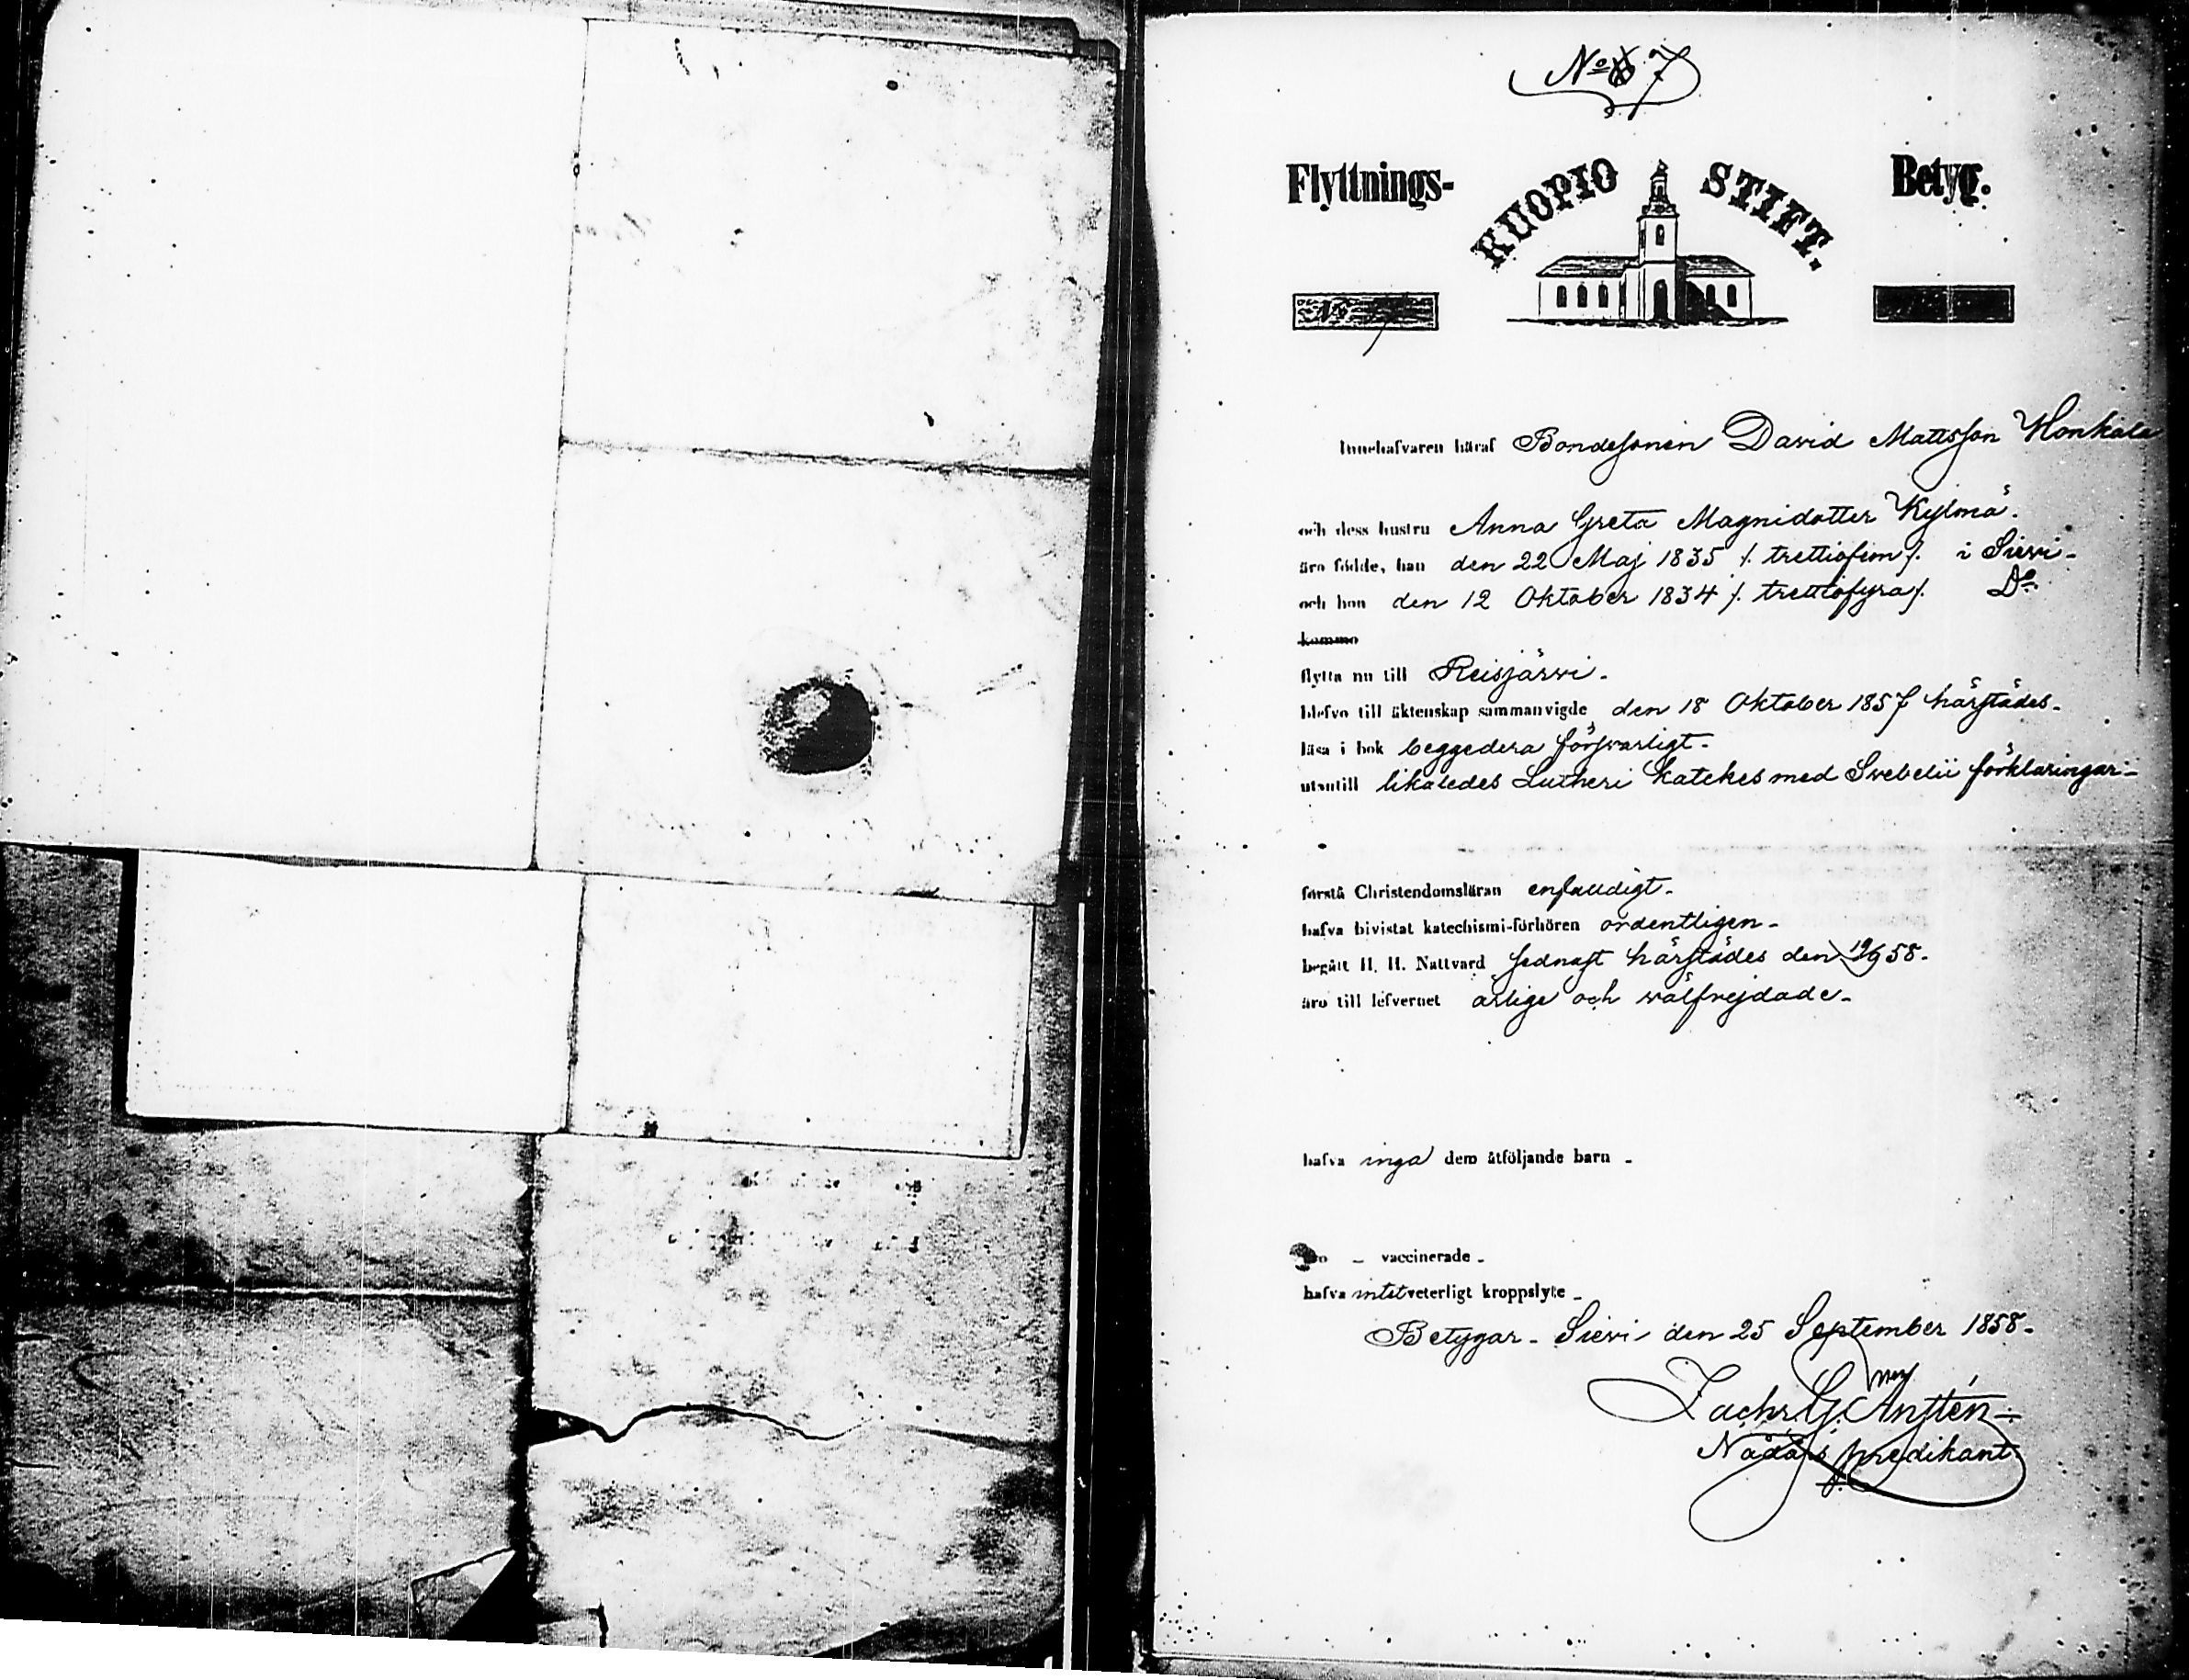 No 7
Flyttnings- KUOPIO STIFT. Betyg.
No 7
Innehafvaren häraf Bondesonen David Mattsson Honkala
och dess hustru Anna Greta Magnidotter Kylmä.
äro födde, han den 22 Maj 1835 /. trettiofem /. i Sievi -
och hon den 12 Oktober 1834 /. trettiofyra /. Do
kommo
flytta nu till Reisjärvi.
blefvo till äktenskap sammanvigde den 18 Oktober 1857 härstädes.
läsa i bok beggedera försvarligt.
utantill likaledes Lutheri katekes med Svebelii förklaringar -
förstå Christendomsläran enfaldigt.
hafva bivistat katechismi-förhören ordentligen -
begått H. H. Nattvard sednast härstädes den 19/9 58.
äro till lefvernet ärlige och välfrejdade -
hafva inga dem åtföljande barn -
äro - vaccinerade -
hafva intet veterligt kroppslyte -
Betygar - Sievi den 25 September 1858.
Zachr. G. Anstén
Nådårs predikant